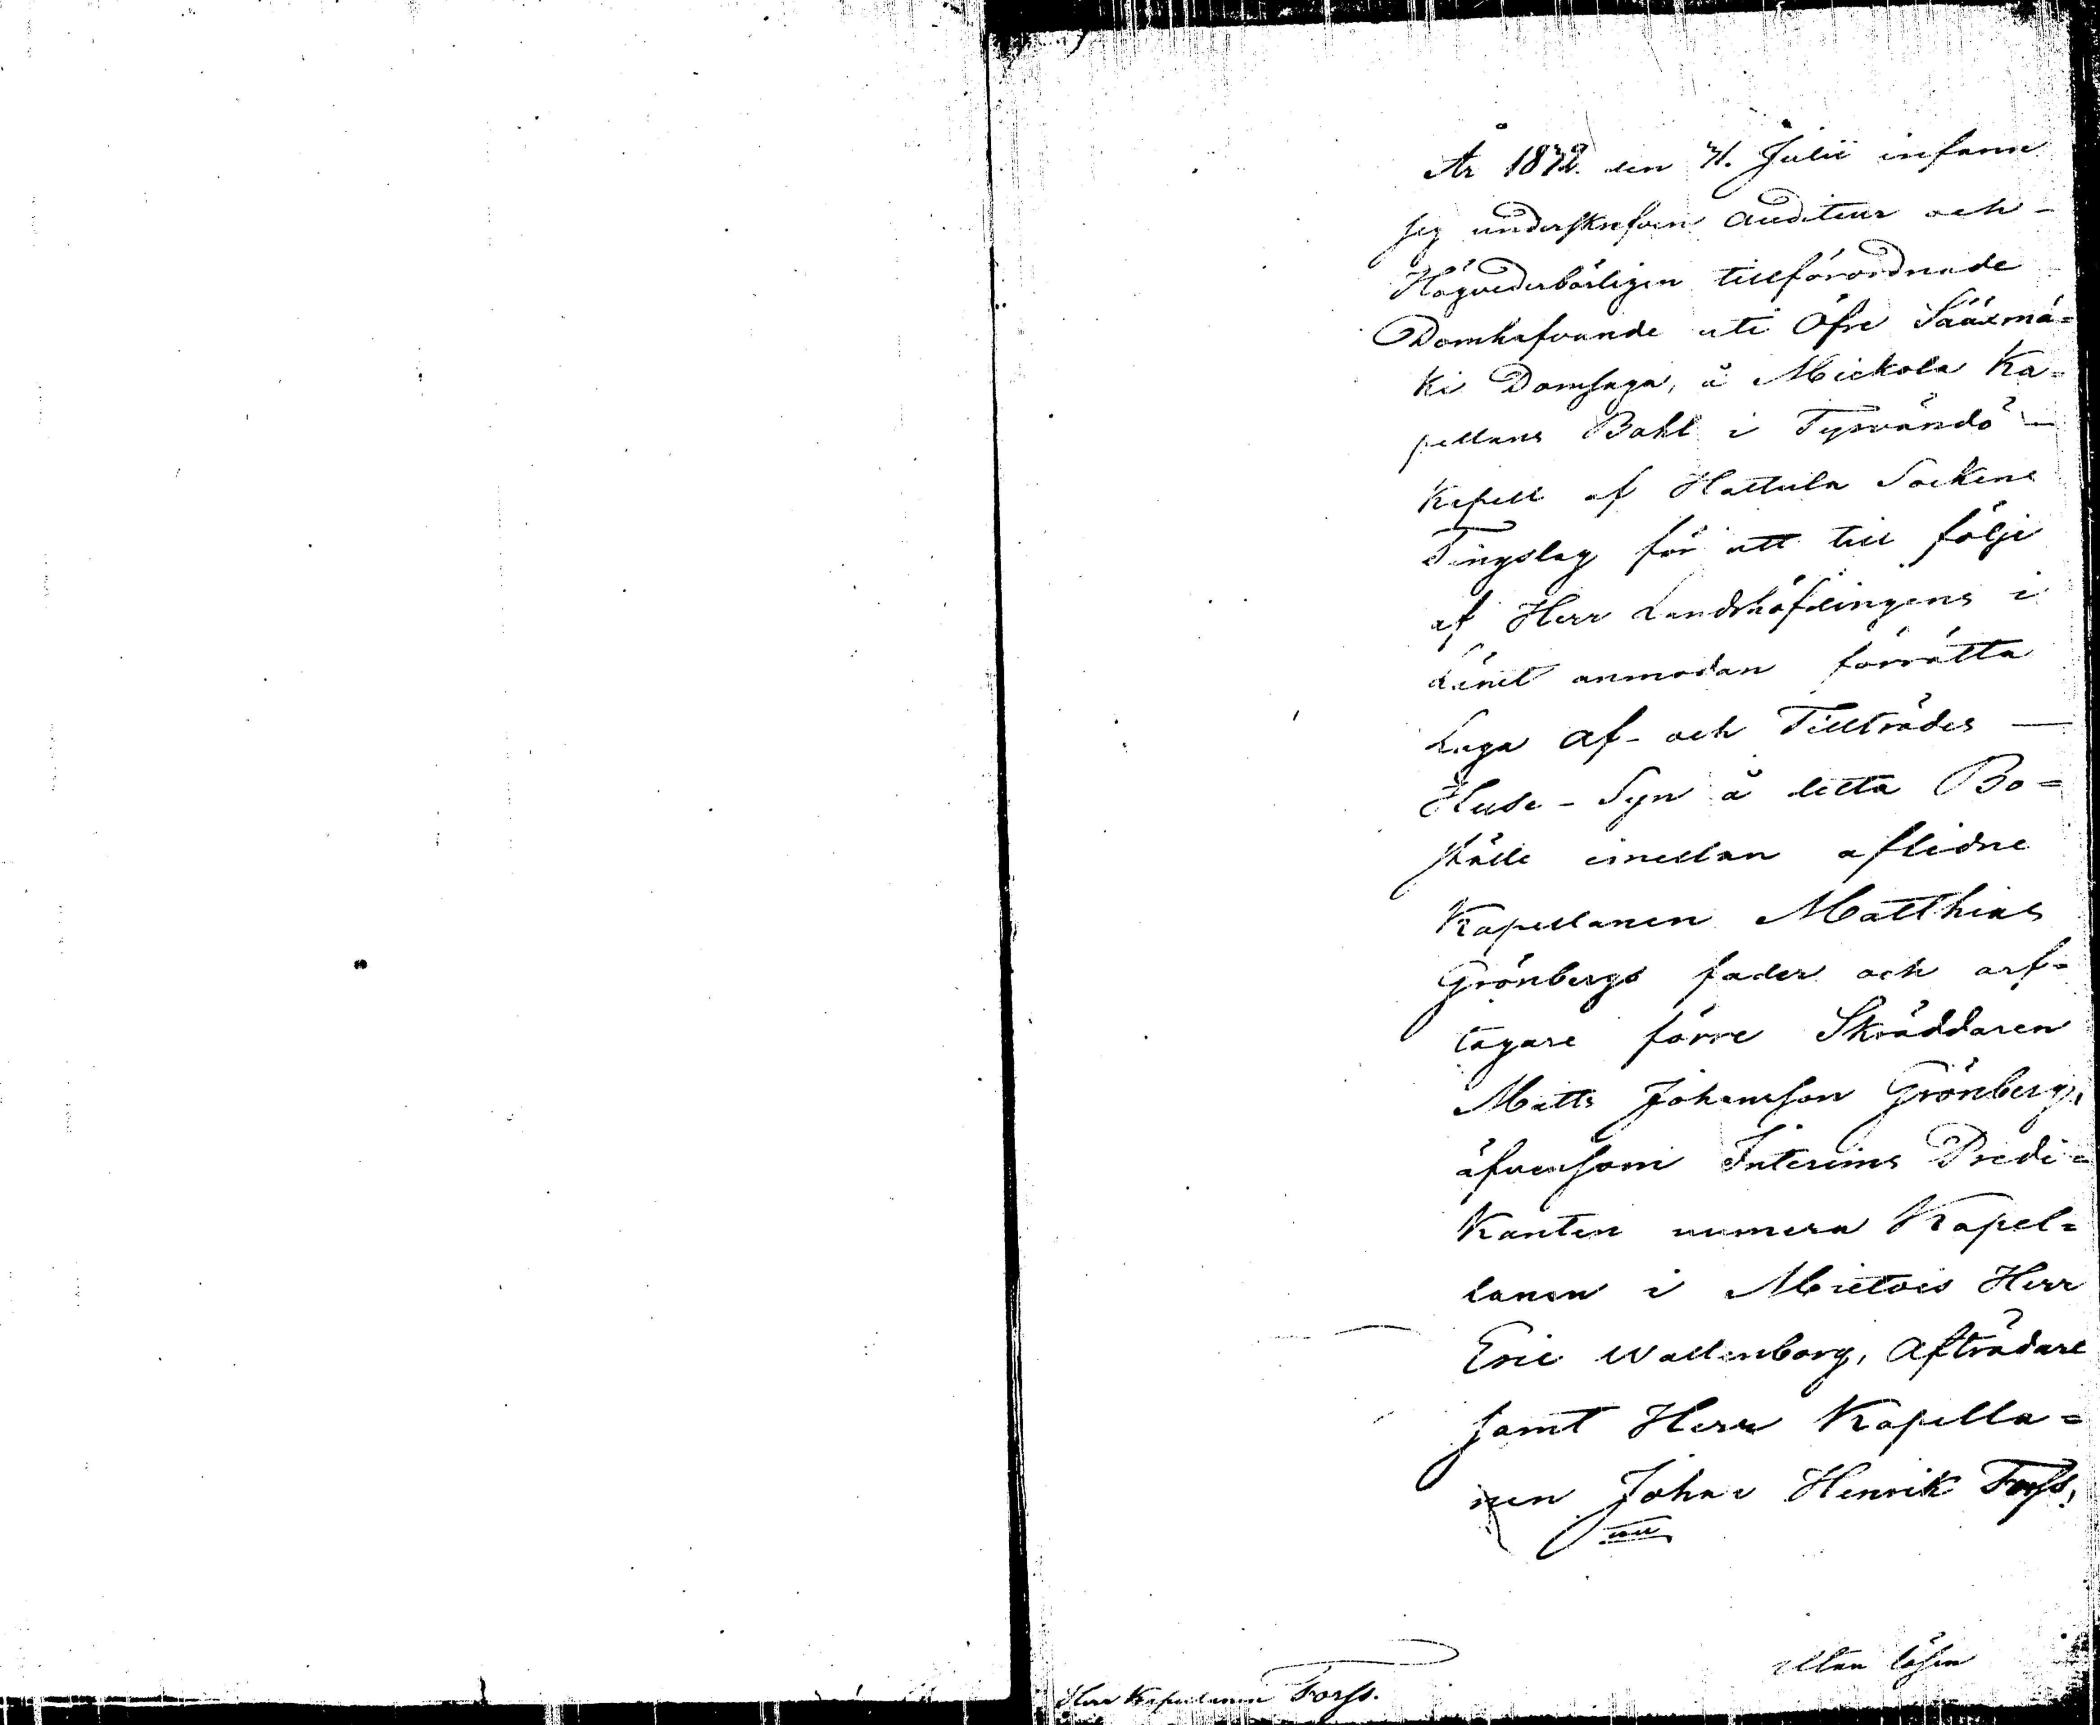 År 1872. den 31. Julii infann
sig underskrifven Auditeur och -
Högvederbörligen tillförordnade
Domhafvande uti Öfre Sääxmä=
ki Domsaga, å Mickola Ka=
pellans Bohl i Tyrvändö -
Kapell af Hattula Sockens
Tingslag för att till följe
af Herr Landshöfdingens i
Länet anmodan förrätta
Laga Af- och Tillträdes -
Huse-Syn å detta Bo=
ställe emellan aflidne
Kapellanen Matthias
Grönbergs fader och arf=
tagare förre Skräddaren
Matts Johansson Grönberg,
äfvensom Interims Predi=
kanten numera Kapel=
lanen i Mietois Herr
Eric Wallenborg, Afträdare
samt Herr Kapella=
nen Johan Henrik Forss,
Utan lösen
Herr Kapellanen Forss.